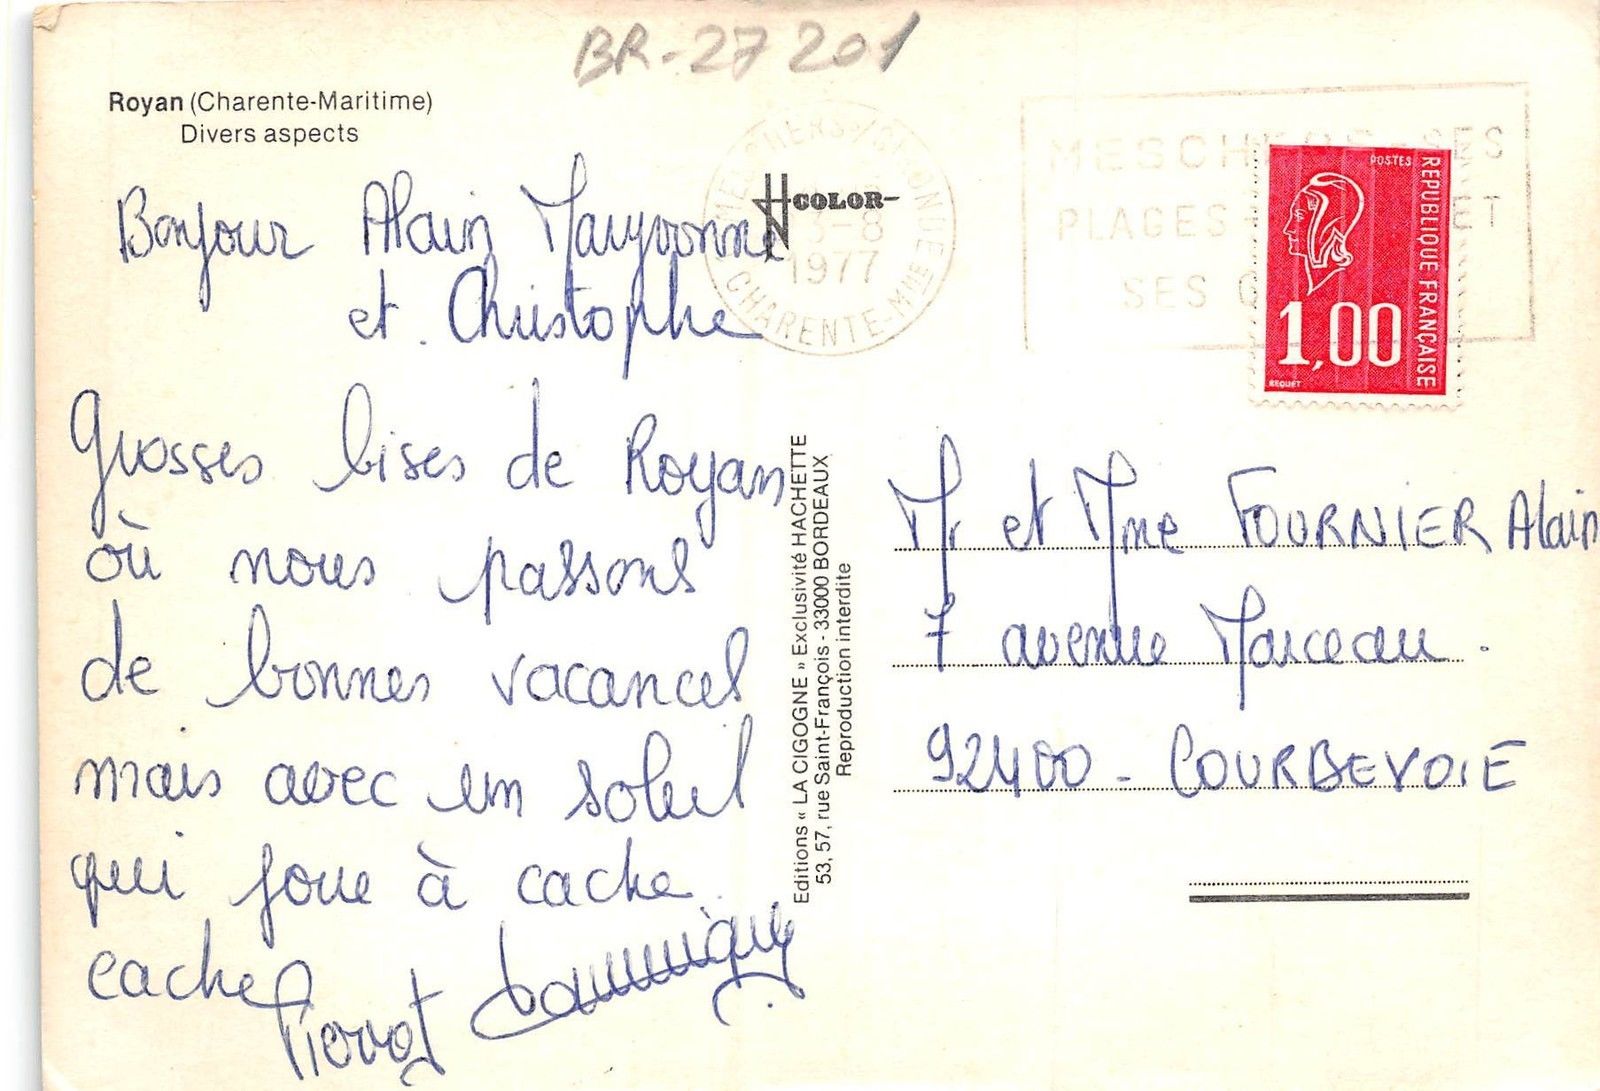 BR-27 201
Royan (Charente-Maritime)
Divers aspects
Bonjour Alain Maryvonne
et Christophe
Grosses bises de Royan
où nous passons
de bonnes vacances
mais avec un soleil
qui joue à cache
cache
Pierrot Dominique
COLOR
MESCHERS S/GIRONDE
3-8
1977
CHARENTE-MME
MESCHERS SES
PLAGES ET
SES G
POSTES
REPUBLIQUE FRANÇAISE
1,00
BEQUET
Editions « LA CIGOGNE » Exclusivité HACHETTE
53, 57, rue Saint-François - 33000 BORDEAUX
Reproduction interdite
Mr et Mme FOURNIER Alain
7 avenue Marceau.
92400 - COURBEVOIE